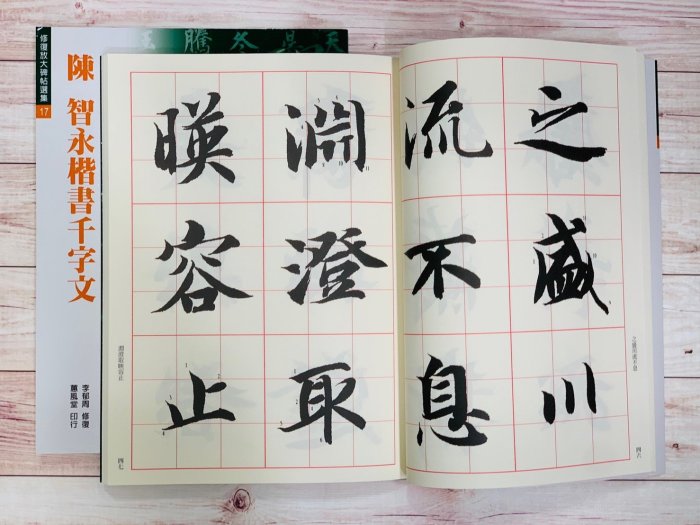 修復放大碑帖選集 17
陳 智永楷書千字文
李郁周 修復
蕙風堂 印行
冬
騰
之盛川
流不息
之盛川流不息
四六
淵澄取
暎容止
淵澄取暎容止
四七